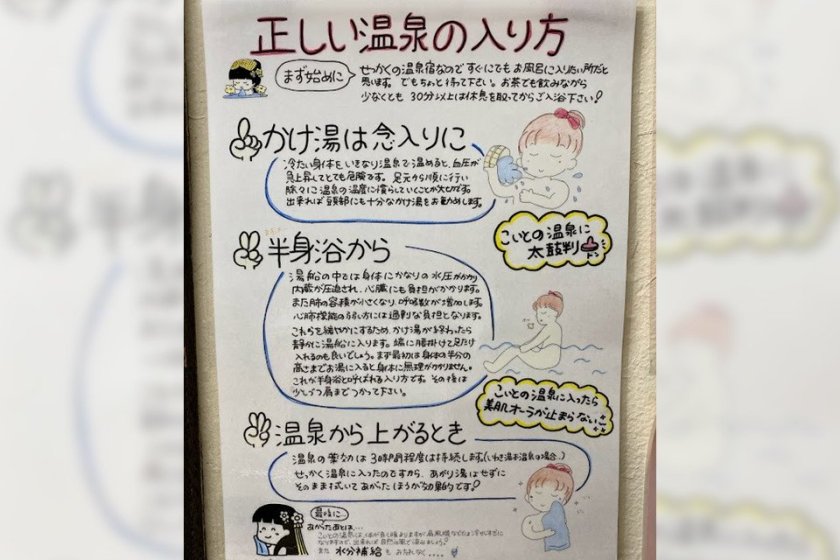 正しい温泉の入り方
まず始めに
せっかくの温泉宿なのですぐにでもお風呂に入りたい所だと
思います。でもちょと待て下さい。お茶でも飲みながら
少なくとも 30分以上は休息を取ってからご入浴下さい!
かけ湯は念入りに
冷たい身体をいきなり温泉で温めると、血圧が
急上昇してとても危険です。足元から順に行い
徐々に温泉の温度に慣らしていくことが大切です。
出来れば頭部にも十分なかけ湯をお勧めします。
こいとの温泉に
太鼓判
半身浴から
湯船の中では身体にかなりの水圧がかかり
内臓が圧迫され、心臓にも負担がかかります。
また肺の容積が小さくなり、呼吸数が増加します。
心肺機能の弱い方には過剰な負担となります。
これらを緩やかにするため、かけ湯が終わったら
静かに湯船に入ります。端に腰掛けて足だけ
入れるのも良いでしょう。まず最初は身体の半分の
高さまでお湯に入ると身体に無理がかかりません。
これが半身浴と呼ばれる入り方です。その後は
少しづつ肩までつかって下さい。
こいとの温泉に入ったら
美肌オーラが止まらない
温泉から上がるとき
温泉の薬効は3時間程度は持続します(いわき湯本温泉の場合。)
せっかく温泉に入ったのですから、あがり湯はせずに
そのまま拭いてあがったほうが効果的です!
最後に
あがったあとは…
また 水分補給 も お忘れなく....